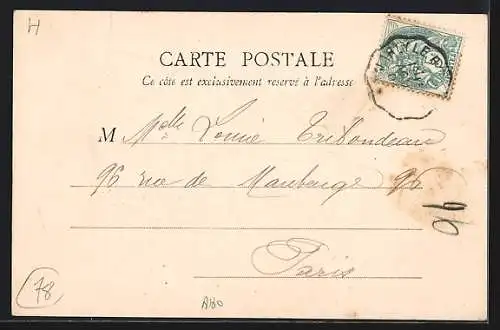 H
MARLY LE R
CARTE POSTALE
Ce côté est exclusivement réservé à l'adresse
M Melle Louise Tribondeau
96 rue de Maubeuge 96
96
Paris
78
A80